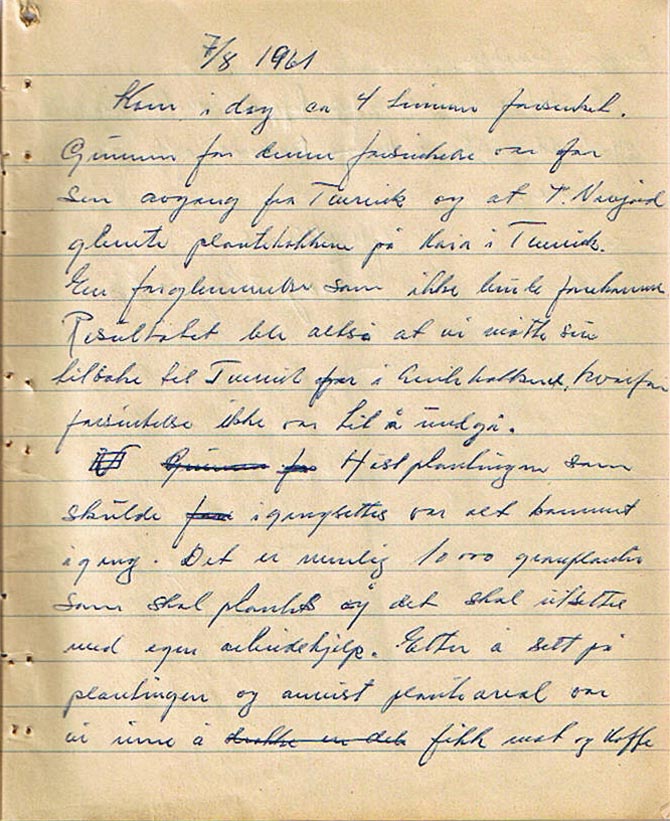 7/8 1961
Kom i dag ca 4 timer forsinket.
Grunnen for denne forsinkelse var for
sen avgang fra Tverrvik og at
glemte plantehakkene på kaia i Tverrvik.
En forglemmelse som ikke burde forekomme
Resultatet ble altså at vi måtte snu
tilbake til Tverrvik for i hakkene, hvorfor
forsinkelse ikke var til å undgå.
Grunnen for Høstplantingen som
skulde igangsettes var alt kommet
igang. Det er nemlig 10000 granplanter
som skal plantes og det skal utsettes
med egen arbeidshjelp. Etter å sett på
plantingen og anvist planteareal var
vi inne å drakk en del fikk mat og kaffe